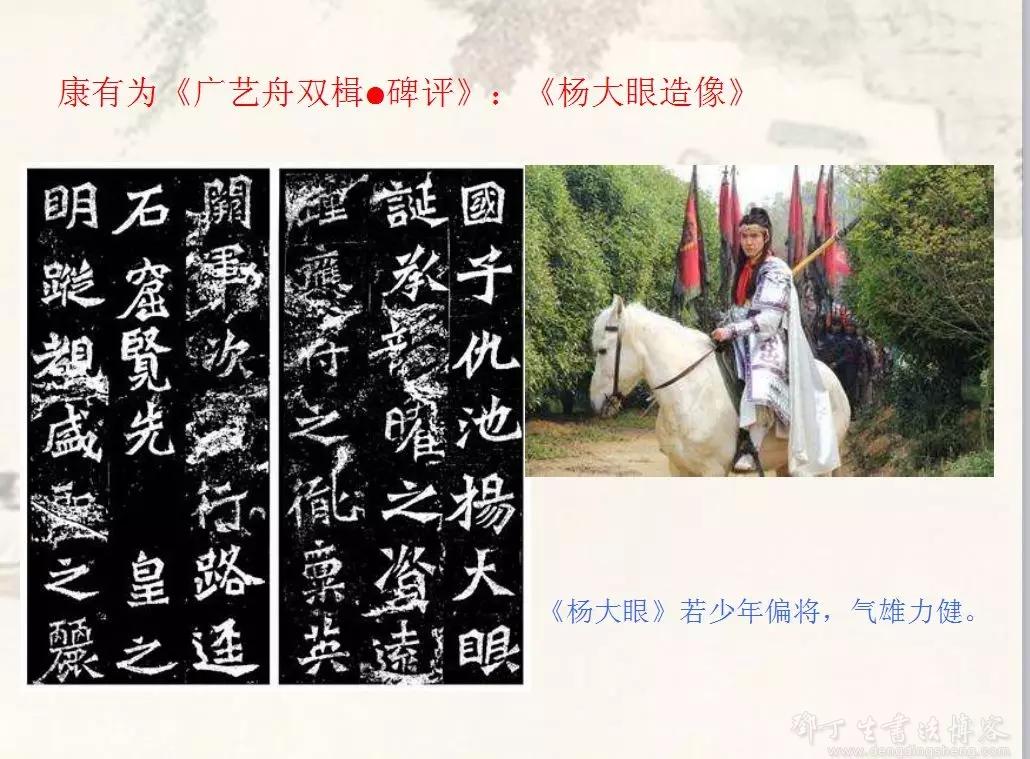 康有为《广艺舟双楫●碑评》：《杨大眼造像》
國子仇池楊大眼
誕承龍曜之資遠
踵應符之胤稟英
闕軍次行路逕
石窟覽先 皇之
明蹤覩盛聖之麗
《杨大眼》若少年偏将，气雄力健。
邓丁生书法博客
www.dengdingsheng.com